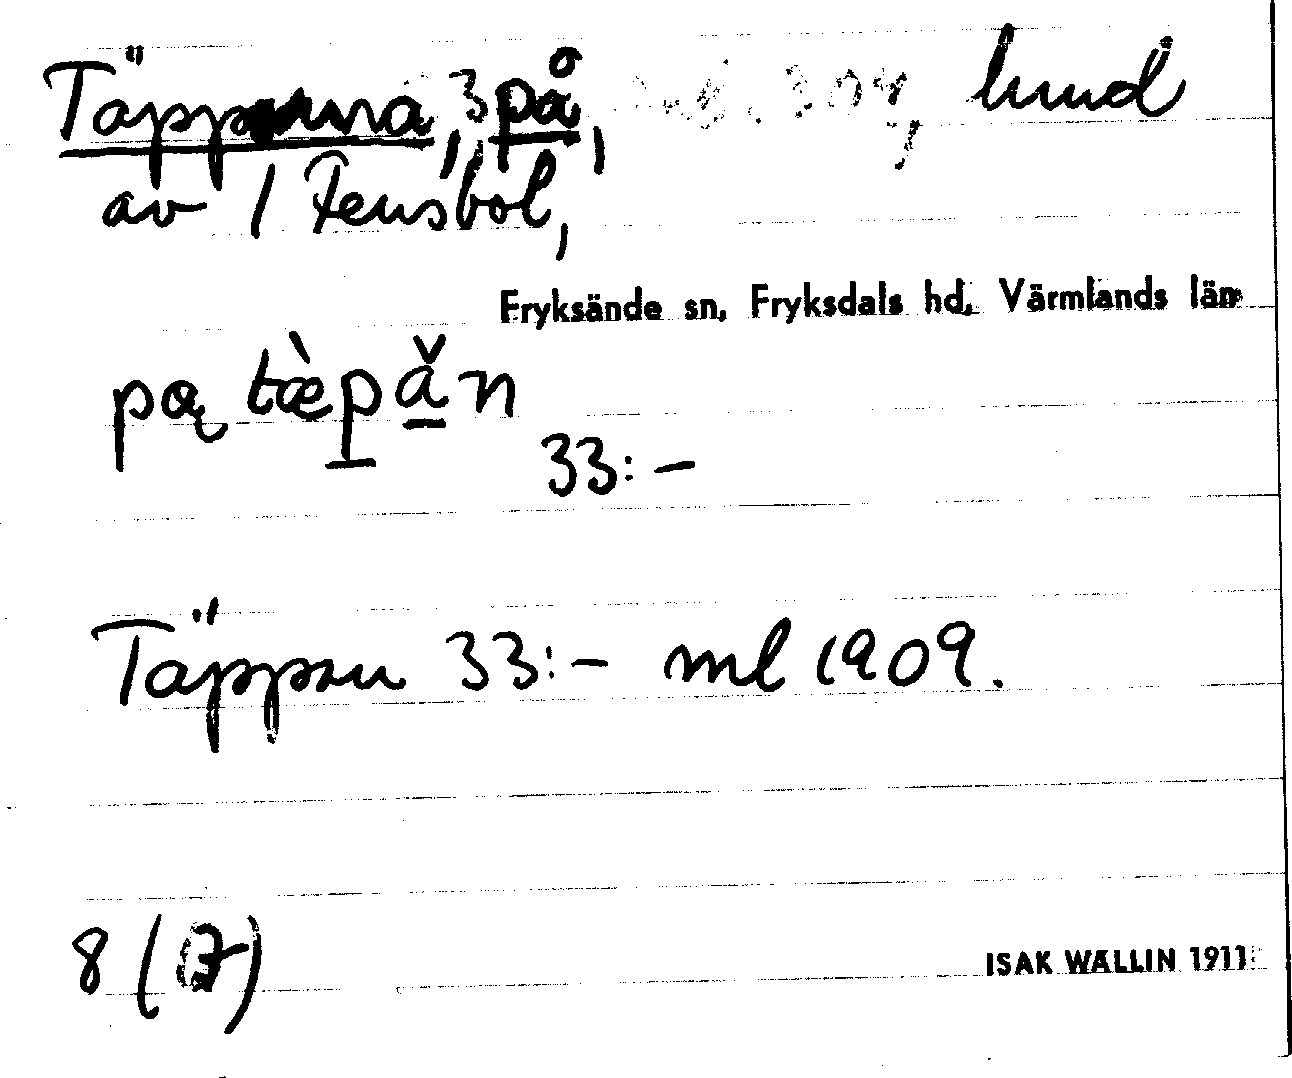 Täpporna, 3 på, lund
av 1 Fensbol,
Fryksände sn, Fryksdals hd, Värmlands län
pą tæ̀pǎn
33:-
Täppan 33:- ml 1909.
8 (7)
ISAK WALLIN 1911